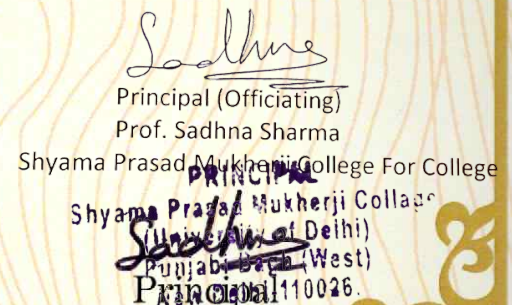 Sadhna
Principal (Officiating)
Prof. Sadhna Sharma
Shyama Prasad Mukherji College For College
PRINCIPAL
Shyama Prasad Mukherji Collage
Sadhna
(University of Delhi)
Punjabi Bagh (West)
Principal
110026.